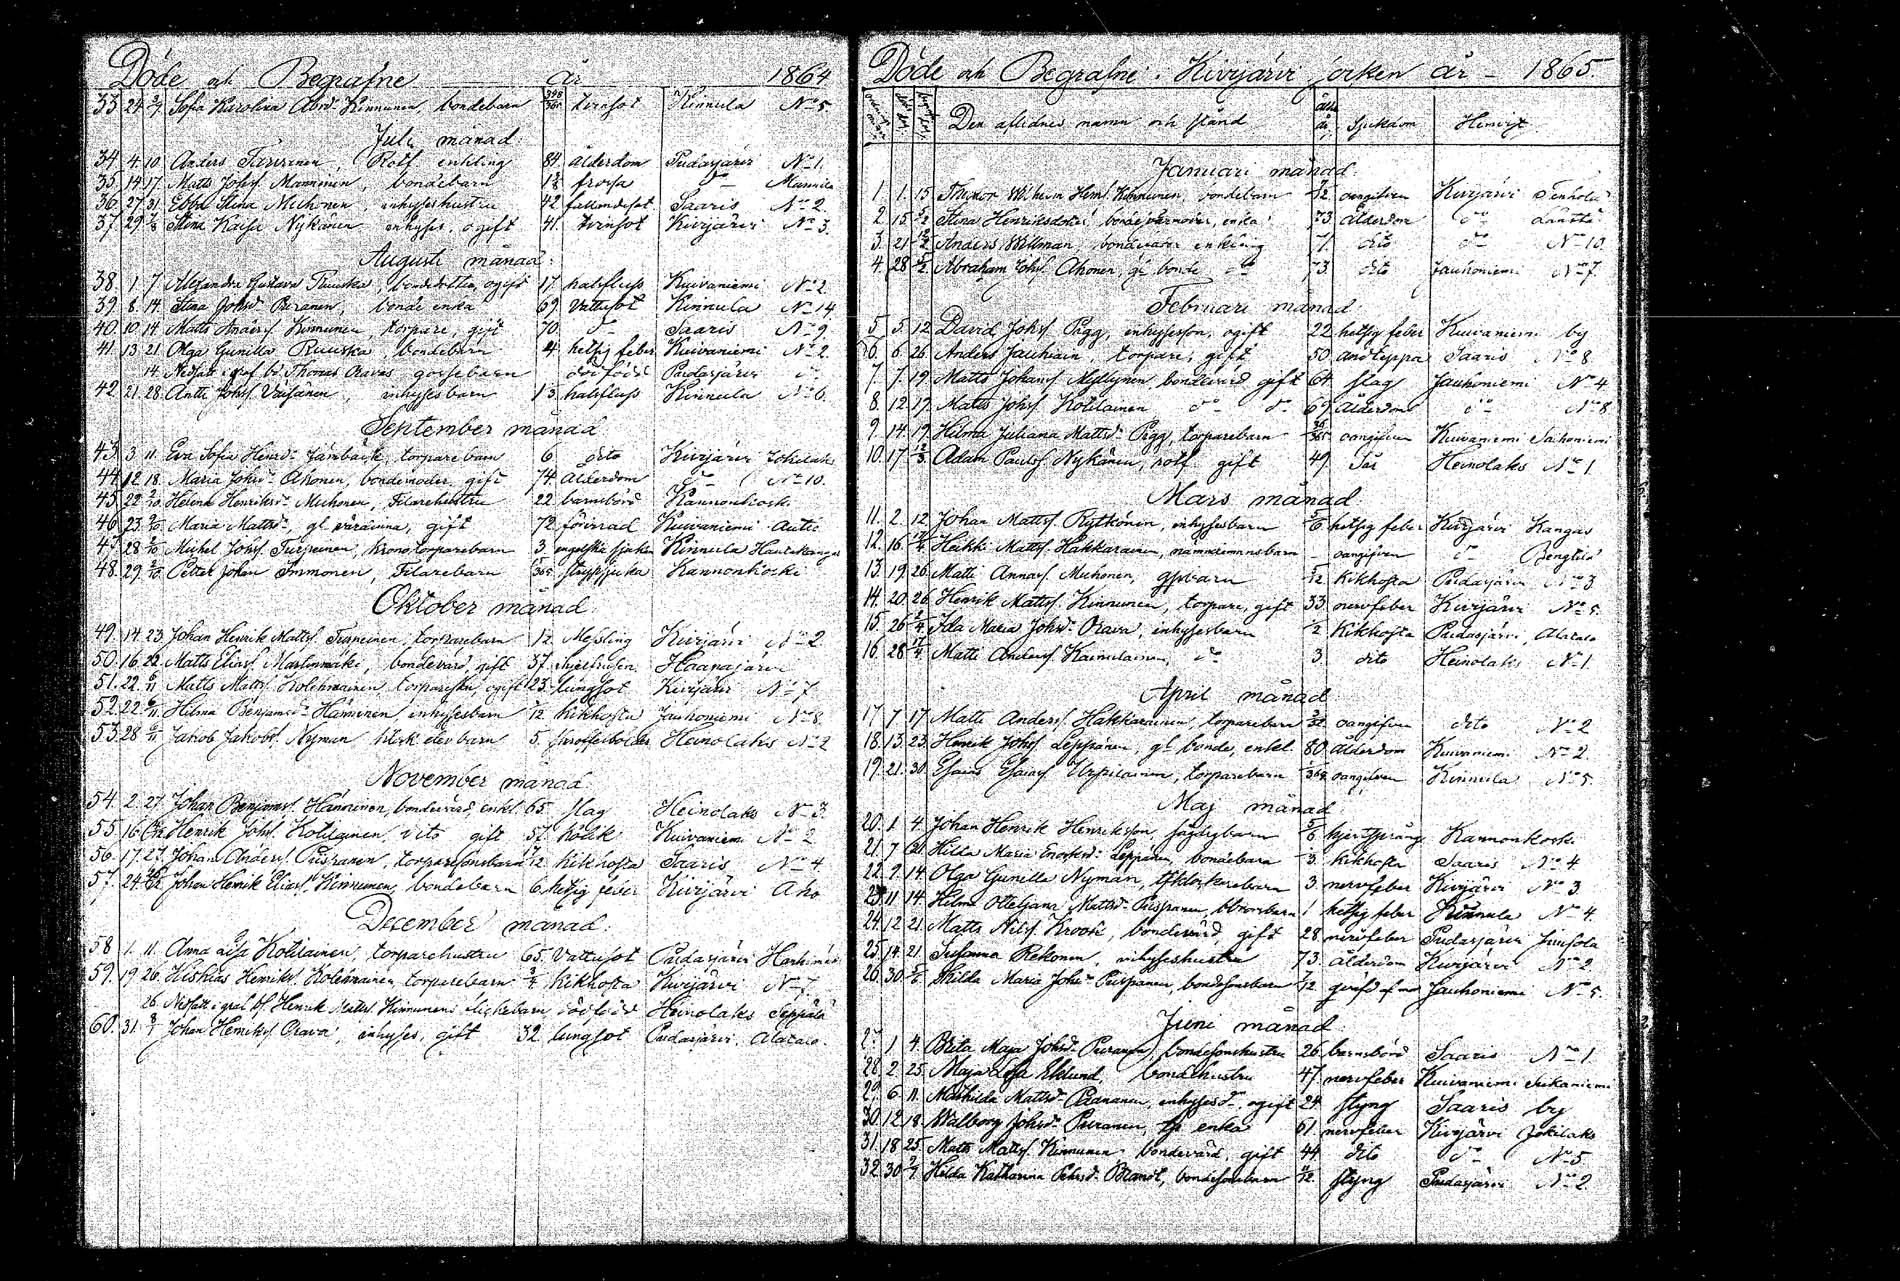 Döde och Begrafne år 1864
33. 24. Sofia Karolina Kinnunen, bondebarn tvinsot Kinnula No 5
Juli månad.
34. 4. 10. Anders Rotf. enkling 84. ålderdom Pudasjärvi No 1.
35. 14. 17. Matts Johsf. Manninen, bondebarn frossa do Mannila
36. 27. 31. Ebba Stina Muhonen, inhyseshustru 42. fallandesot Saaris No 2.
37. 29. Stina Kaisa Nykänen inhyses, ogift 41. tvinsot Kivijärvi No 3.
Augusti månad.
38. 1. 7. Alexandra Gustava Ruuska, bondedotter, ogift 17. halsfluss Kuivaniemi No 2
39. 8. 14. Stina Johsd. Puranen, bonde enka 69. Vattusot Kinnula No 14
40. 10. 14. Matts Andersf. Kinnunen, torpare, gift 70. do Saaris No 9
41. 13. 21. Olga Gunilla Ruuska, bondebarn 4. hetsig feber Kuivaniemi No 2.
14. Nedsatt i graf bd. Thomas Oravas gossebarn dödfödd Pudasjärvi do
42. 21. 28. Antti Johsf. Väisänen, inhysesbarn 13. halsfluss Kinnula No 6.
September månad
43. 3. 11. Eva Sofia Henrd. torparebarn 6 dito Kivijärvi Jokilaks
44. 12. 18. Maria Johsd. Ahonen, bondemoder, gift 74. ålderdom do No 10.
45. 22. 2/10 Helena Henriksd. Muhonen, Filarehustru 22 barnsbörd Kannonkoski
46. 23. 2/10 Maria Mattsd. gl. gift 72. förinrad Kuivaniemi Autio
47. 28. Mickel Johsf. Turpeinen, Kronotorparebarn 3. engelska sjukan Kinnula Hautakangas
48. 29. Petter Johan Immonen, Filarebarn strypsjuka Kannonkoski
Oktober månad.
49. 14. 23. Johan Henrik Mattsf. Turpeinen, torparebarn 12. Messling Kivijärvi No 2
50. 16. Matts Eliasf. Martinmäki, bondevärd, gift 37. Haapajärvi
51. 22. Matts Mattsf. Kolehmainen, ogift 23. lungsot Kivijärvi No 7
52. 22. Hilma Benjamsd. Hänninen, inhysesbarn kikhosta Jauhoniemi No 8.
53. 28. Jakob Jakobsf. Nyman barn 5. Heinolaks No 2
November månad.
54. 2. 27. Johan Benjamsf. Hänninen, bondevärd, enkl. 65. slag Heinolaks No 3.
55. 16. Henrik Johsf. Kotilainen dito gift 57. kolik Kuivaniemi No 2
56. 17. 27. Johan Andersf. Puspanen, torparesonsbarn kikhosta Saaris No 4.
57. 24. Johan Henrik Eliasf. Kinnunen, bondebarn 6. hetsig feber Kivijärvi Aho
December månad.
58. 1. 11. Anna Lisa Kotilainen, torparehustru 65. Vattusot Pudasjärvi
59. 19. 26. Hiskias Henriksf. Kolehmainen, torparebarn kikhosta Kivijärvi No 7.
26. Nedsatt i graf bf. Henrik Mattsf. Kinnunens flickebarn dödfödd Heinolaks Seppälä
60. 31. Johan Henriksf. Orava, inhyses, gift 32. lungsot Pudasjärvi. Alatalo
Döde och Begrafne i Kivijärvi år 1865
Den aflidnes namn och stånd Sjukdom Hemvist
Januari månad
1. 1. 15. Wilhelm Henrf. Kinnunen, bondebarn oangifven Kivijärvi
2. 15. Stina Henriksdotter enka 73. ålderdom do
3. 21. Anders Willman, enkling dito do No 10.
4. 28. Abraham Johsf. Ahonen, gl. bonde do 73. dito Jauhoniemi No 7.
Februari månad.
5. 5. 12 David Johsf. Pigg, inhysesson, ogift 22 hetsig feber Kuivaniemi by
6. 6. 26 Anders Jauhiain, torpare, gift 50. andteppa Saaris No 8
7. 7. 19 Matts Johansf. Myllynen, bondevärd gift 64. slag Jauhoniemi No 4
8. 12. 19 Matts Johsf. Kotilainen do do 69. Ålderdom do No 8
9. 14. 19. Hilma Juliana Mattsd. Pigg, torparebarn oangifven Kuivaniemi
10. 17. Adam Paulsf. Nykänen, rotf. gift 49. Sår Heinolaks No 1
Mars månad.
11. 2. 12. Johan Mattsf. Rytkönen, inhysesbarn hetsig feber Kivijärvi Kangas
12. 16. Heikki Mattsf. Hakkarainen, oangifven do
13. 19. 26. Matti Annasf. Muhonen, kikhosta Pudasjärvi No 3
14. 20. 26. Henrik Mattsf. Kinnunen, torpare, gift 33. nervfeber Kivijärvi No 5.
15. 26. Ida Maria Johsd. Orava, inhysesbarn Kikhosta Pudasjärvi, Alatalo
16. 28. Matti Andersf. Kainulainen, do 3. dito Heinolaks No 1.
April månad
17. 7. 17. Matti Andersf. Hakkarainen, torparebarn oangifven dito No 2
18. 13. 23. Henrik Johsf. Leppänen, gl. bonde, enkl. 80. ålderdom Kuivaniemi No 2.
19. 21. 30. Esaias Esaiasf. torparebarn oangifven Kinnula No 5.
Maj månad
20. 1. 4. Johan Henrik Henriksson, barn hjertsprång Kannonkoski
21. 7. 21. Hilda Maria Enochsd. Leppänen, bondebarn 3. kikhosta Saaris No 4
22. 9. 14. Olga Gunilla Nyman, 3. nervfeber Kivijärvi No 3.
23. 11. 14. Hilma Mattsd. Puspanen, 1 hetsig feber Kinnula No 4.
24. 12. 21. Matts Nilsf. Krook, bondevärd gift 28. nervfeber Pudasjärvi
25. 14. 21. Susanna Rekonen, inhyseshustru 73. ålderdom Kivijärvi No 2
26. 30. Hilda Maria Johsd. Puspanen, bondesonsbarn Jauhoniemi No 5.
Juni månad.
27. 1. 4. Brita Maja Johsd. Puranen, bondesonshustru 26. barnsbörd Saaris No 1
28. 2. 25. Maja Lisa Eklund, bondehustru 47. nervfeber Kuivaniemi
29. 6. 11. Mathilda Mattsd. Paananen, inhyses do, ogift 24. styng Saaris by
30. 12. 18. Walborg Johsd. Puranen, enka 61. nervfeber Kivijärvi Jokilaks
31. 18. 25. Matts Mattsf. Kinnunen bondevärd, gift 44. dito do No 5.
32. 30. Hilda Katharina Pehrsd. Brandt, bondesonsbarn styng Pudasjärvi No 2.